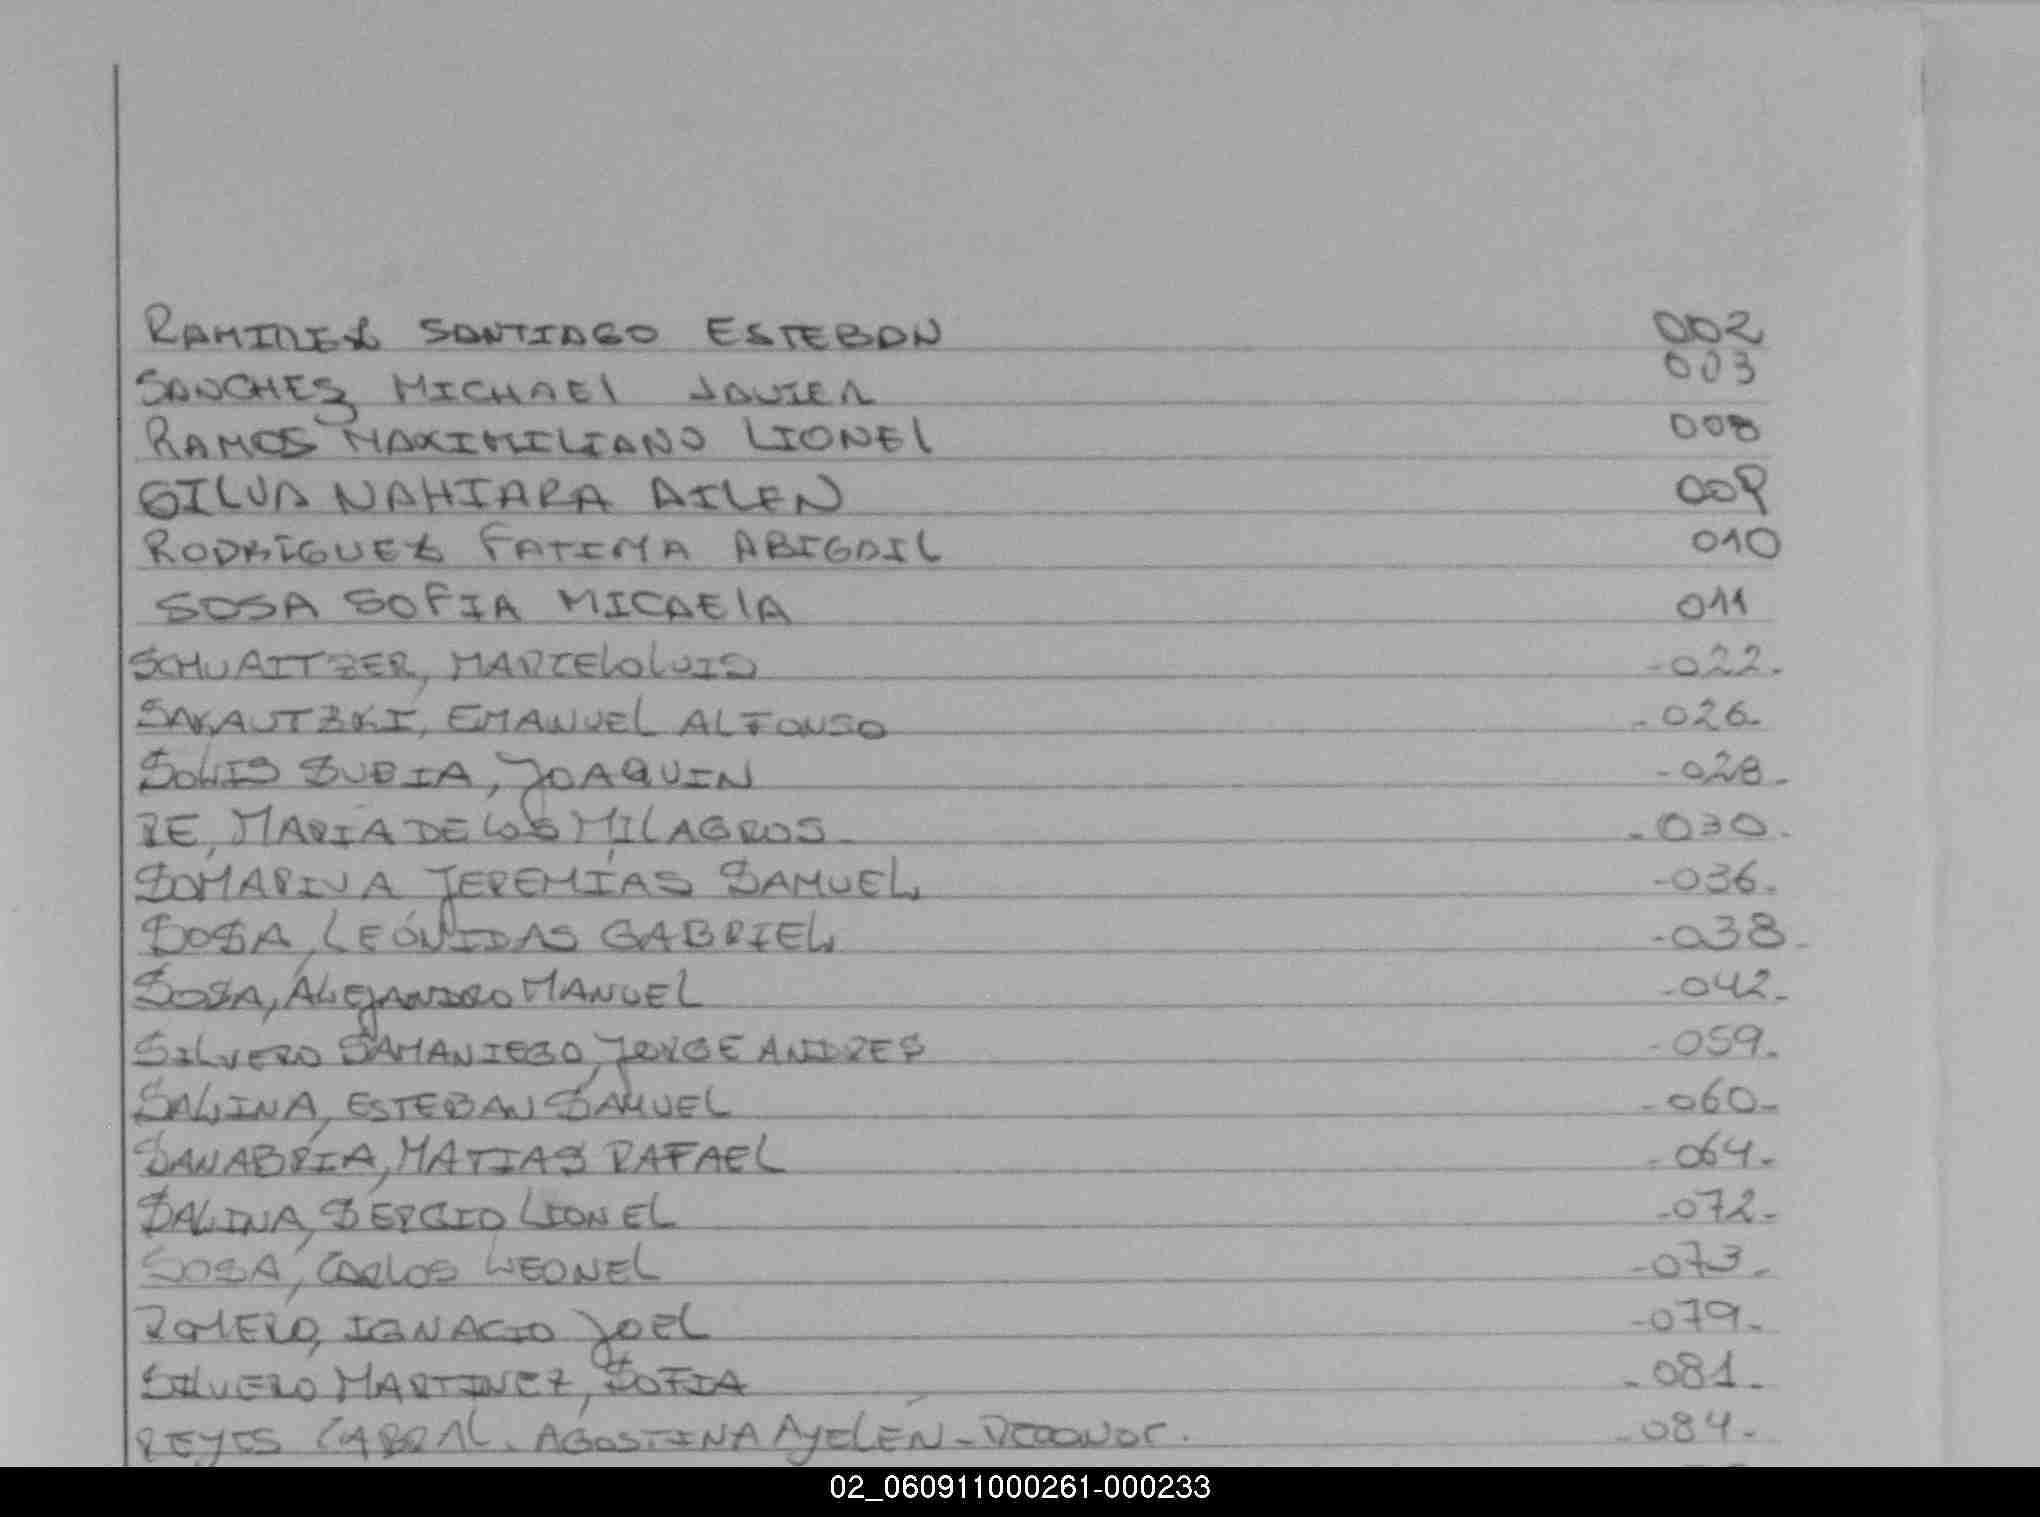 RAMIREZ SANTIAGO ESTEBAN 002
SANCHEZ MICHAEL JAVIER 003
RAMOS MAXIMILIANO LIONEL 008
SILVA NAHIARA AILEN 009
RODRIGUEZ FATIMA ABIGAIL 010
SOSA SOFIA MICAELA 011
SCHUAITZER, MARCELO LUIS -022-
EMANUEL ALFONSO -026-
SOLIS JOAQUIN -028-
RE, MARIA DE LOS MILAGROS -030-
SOMARIVA JEREMÍAS SAMUEL -036-
SOSA, LEÓNIDAS GABRIEL -038-
SOSA, ALEJANDRO MANUEL -042-
SILVERO SAMANIEGO, JORGE ANDRES -059-
SALINA, ESTEBAN SAMUEL -060-
SANABRIA, MATIAS RAFAEL -064-
SALINA, SERGIO LIONEL -072-
SOSA, CARLOS LEONEL -073-
ROMERO, IGNACIO JOEL -079-
SILVERO MARTINEZ, SOFIA -081-
REYES CABRAL, AGOSTINA AYELÉN - RECONOC. -084-
02_060911000261-000233